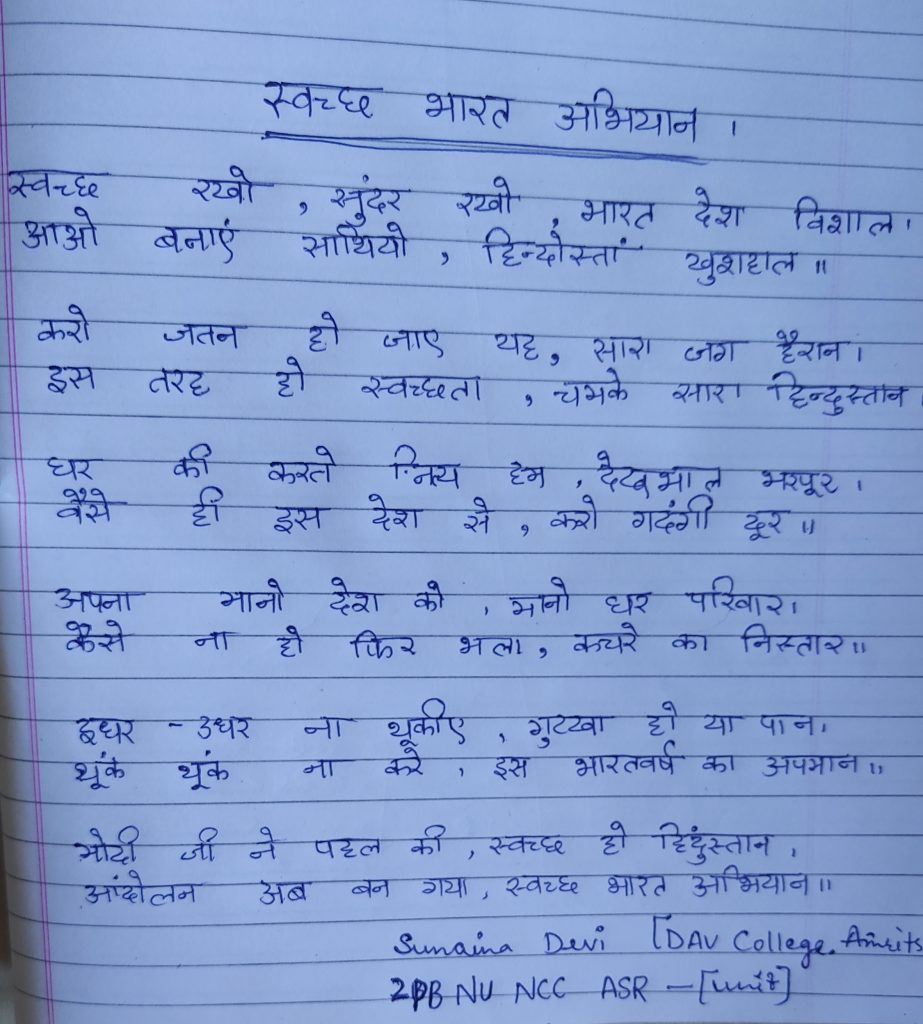 स्वच्छ भारत अभियान ।
स्वच्छ रखो , सुंदर रखो , भारत देश विशाल ।
आओ बनाएं साथियो , हिन्दोस्तां खुशहाल ॥
करो जतन हो जाए यह, सारा जग हैरान ।
इस तरह हो स्वच्छता , चमके सारा हिन्दुस्तान ।
घर की करते नित्य हम , देखभाल भरपूर ।
वैसे ही इस देश से , करो गदंगी दूर ॥
अपना मानो देश को , मानो घर परिवार।
कैसे ना हो फिर भला, कचरे का निस्तार॥
इधर - उधर ना थूकीए , गुटखा हो या पान।
थूंक थूंक ना करे , इस भारतवर्ष का अपमान॥
मोदी जी ने पहल की , स्वच्छ हो हिदुंस्तान ,
आंदोलन अब बन गया , स्वच्छ भारत अभियान॥
Sunaina Devi [DAV College. Amrits
2PB NU NCC ASR - [unit]